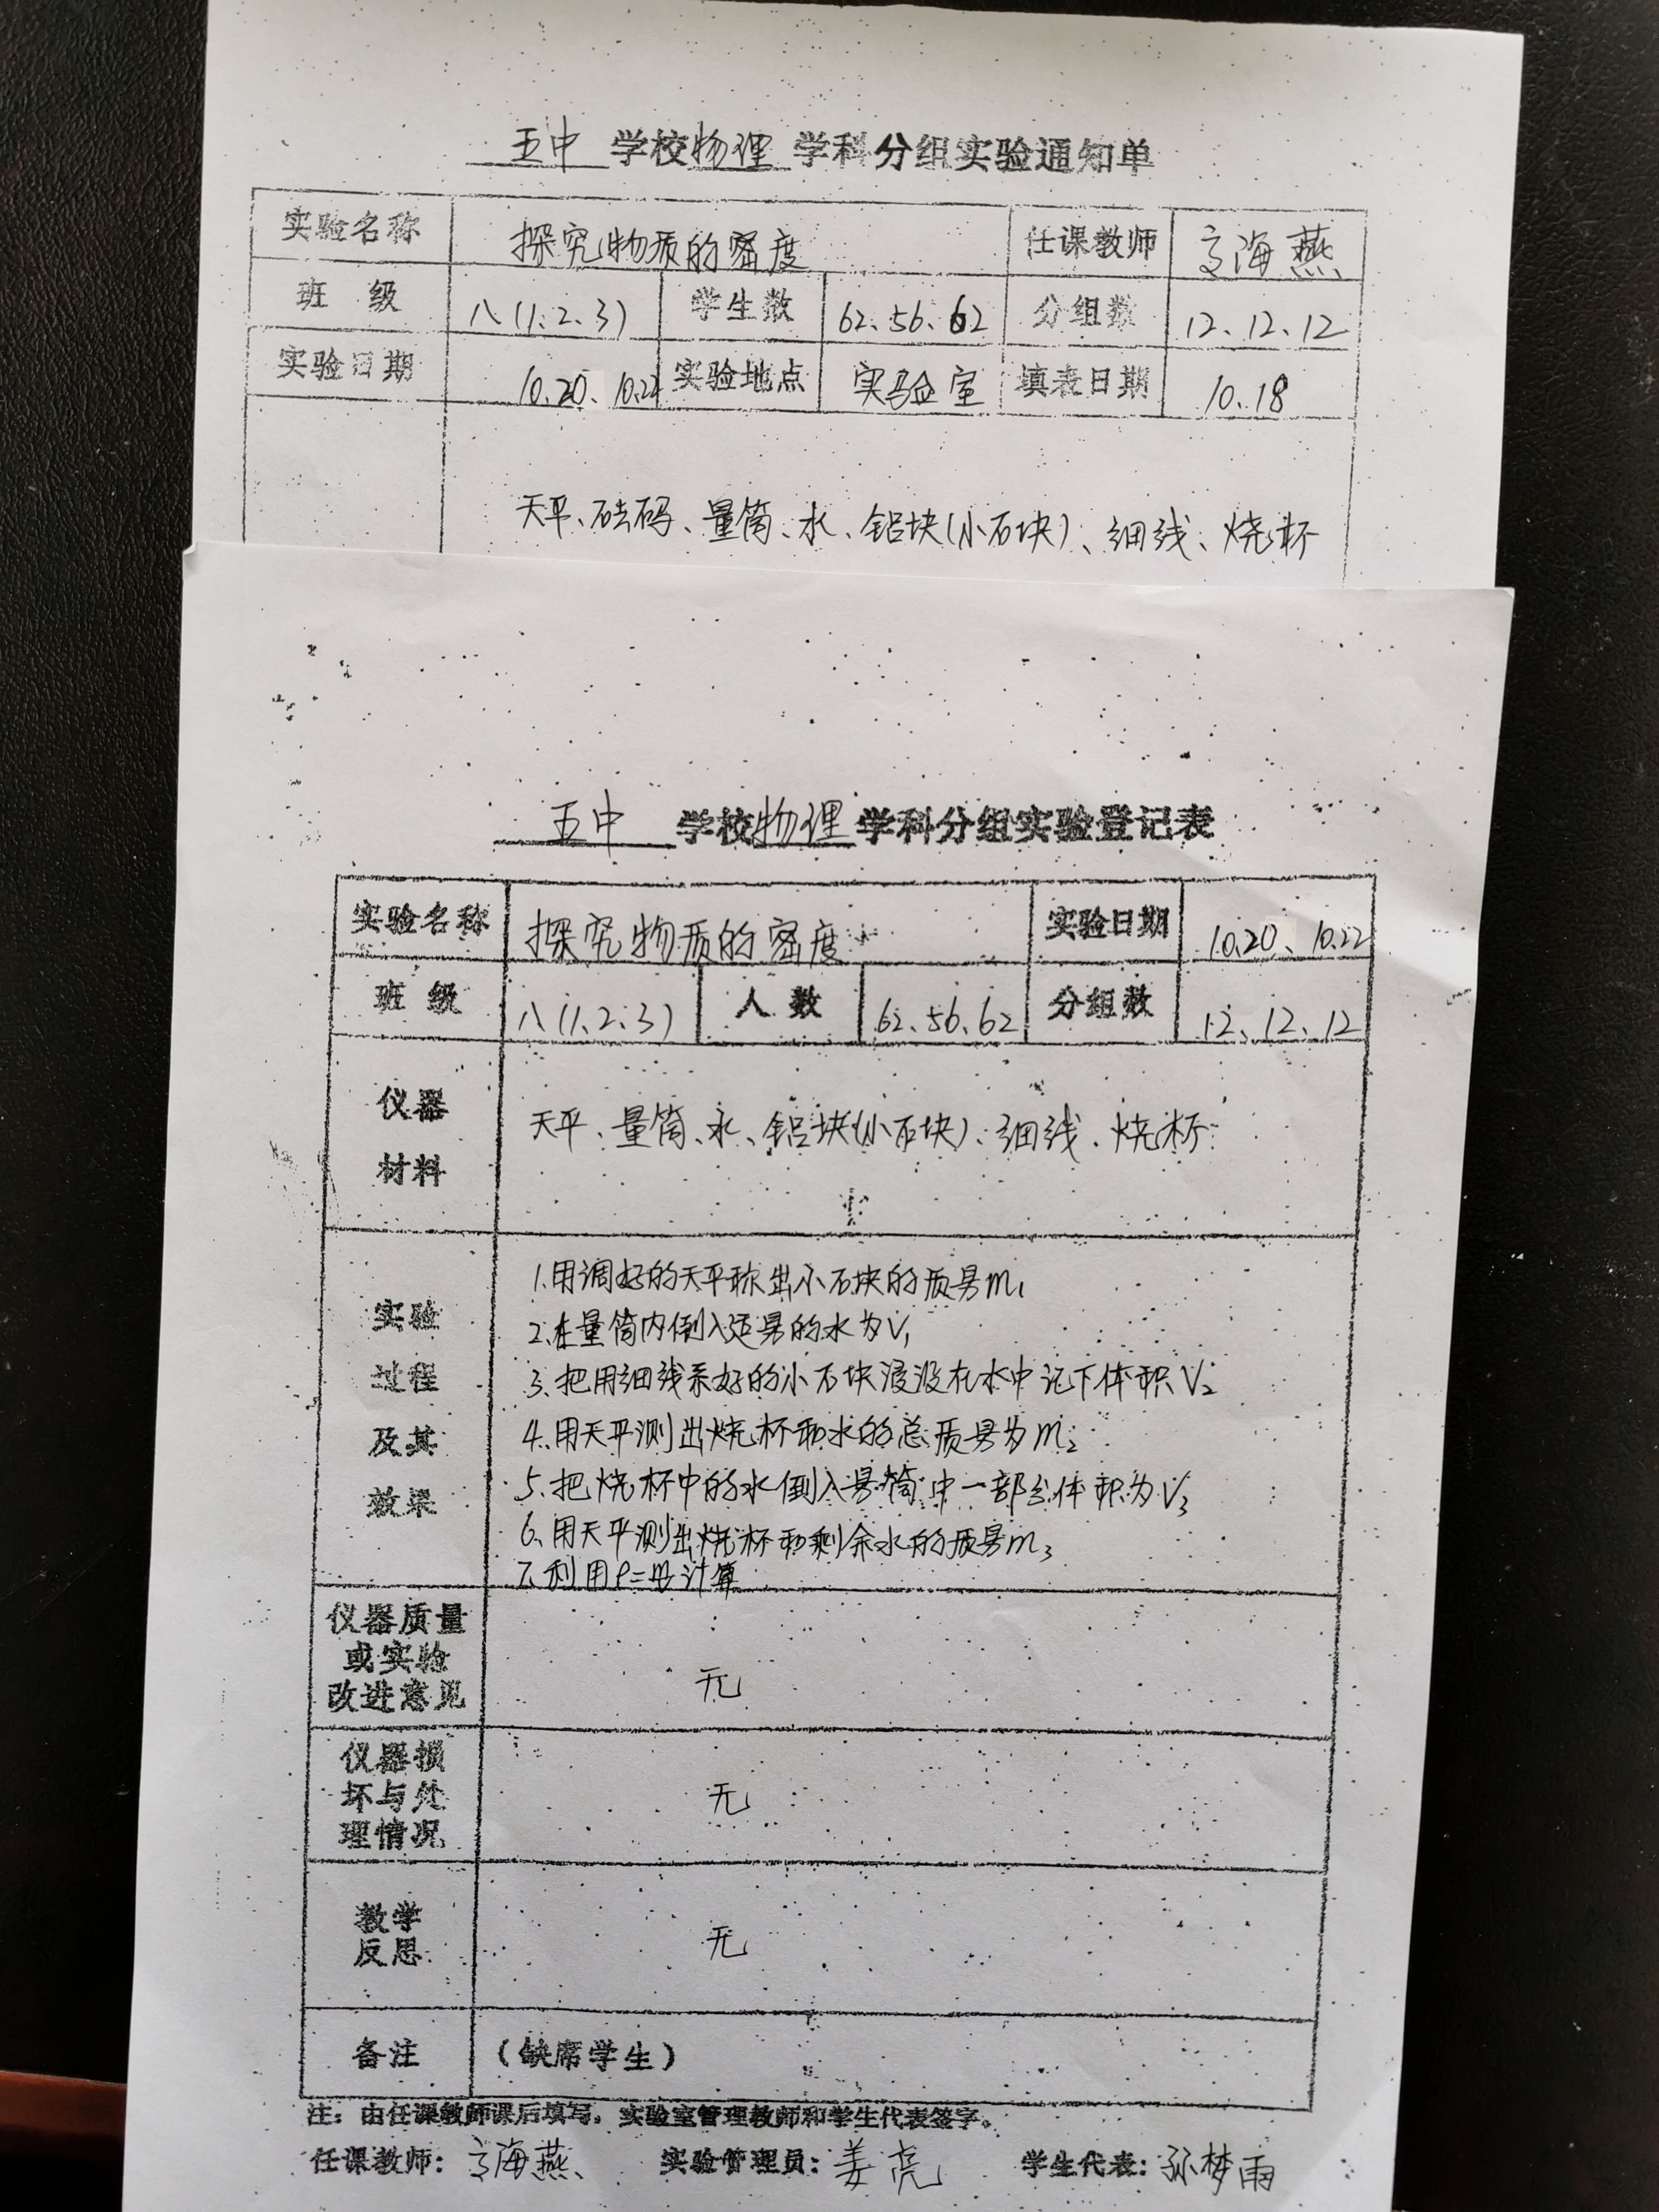 五中 学校物理 学科分组实验通知单
实验名称 探究物质的密度 任课教师 海燕
班 级 八(1、2、3) 学生数 62、56、62 分组数 12、12、12
实验日期 10.20、10.22 实验地点 实验室 填表日期 10.18
天平、砝码、量筒、水、铝块(小石块)、细线、烧杯
五中 学校物理学科分组实验登记表
实验名称 探究物质的密度 实验日期 10.20、10.22
班 级 八(1、2、3) 人 数 62、56、62 分组数 12、12、12
仪器
材料
天平、量筒、水、铝块(小石块)、细线、烧杯
实验
过程
及其
效果
1.用调好的天平称出小石块的质量m₁
2.在量筒内倒入适量的水为V₁
3.把用细线系好的小石块浸没在水中记下体积V₂
4.用天平测出烧杯和水的总质量为m₂
5.把烧杯中的水倒入量筒中一部分体积为V₃
6、用天平测出烧杯和剩余水的质量m₃
7.利用ρ=m/v计算
仪器质量
或实验
改进意见
无
仪器损
坏与处
理情况
无
教学
反思
无
备注 (缺席学生)
注：由任课教师课后填写，实验室管理教师和学生代表签字。
任课教师：海燕 实验管理员：姜亮 学生代表：孙梦雨